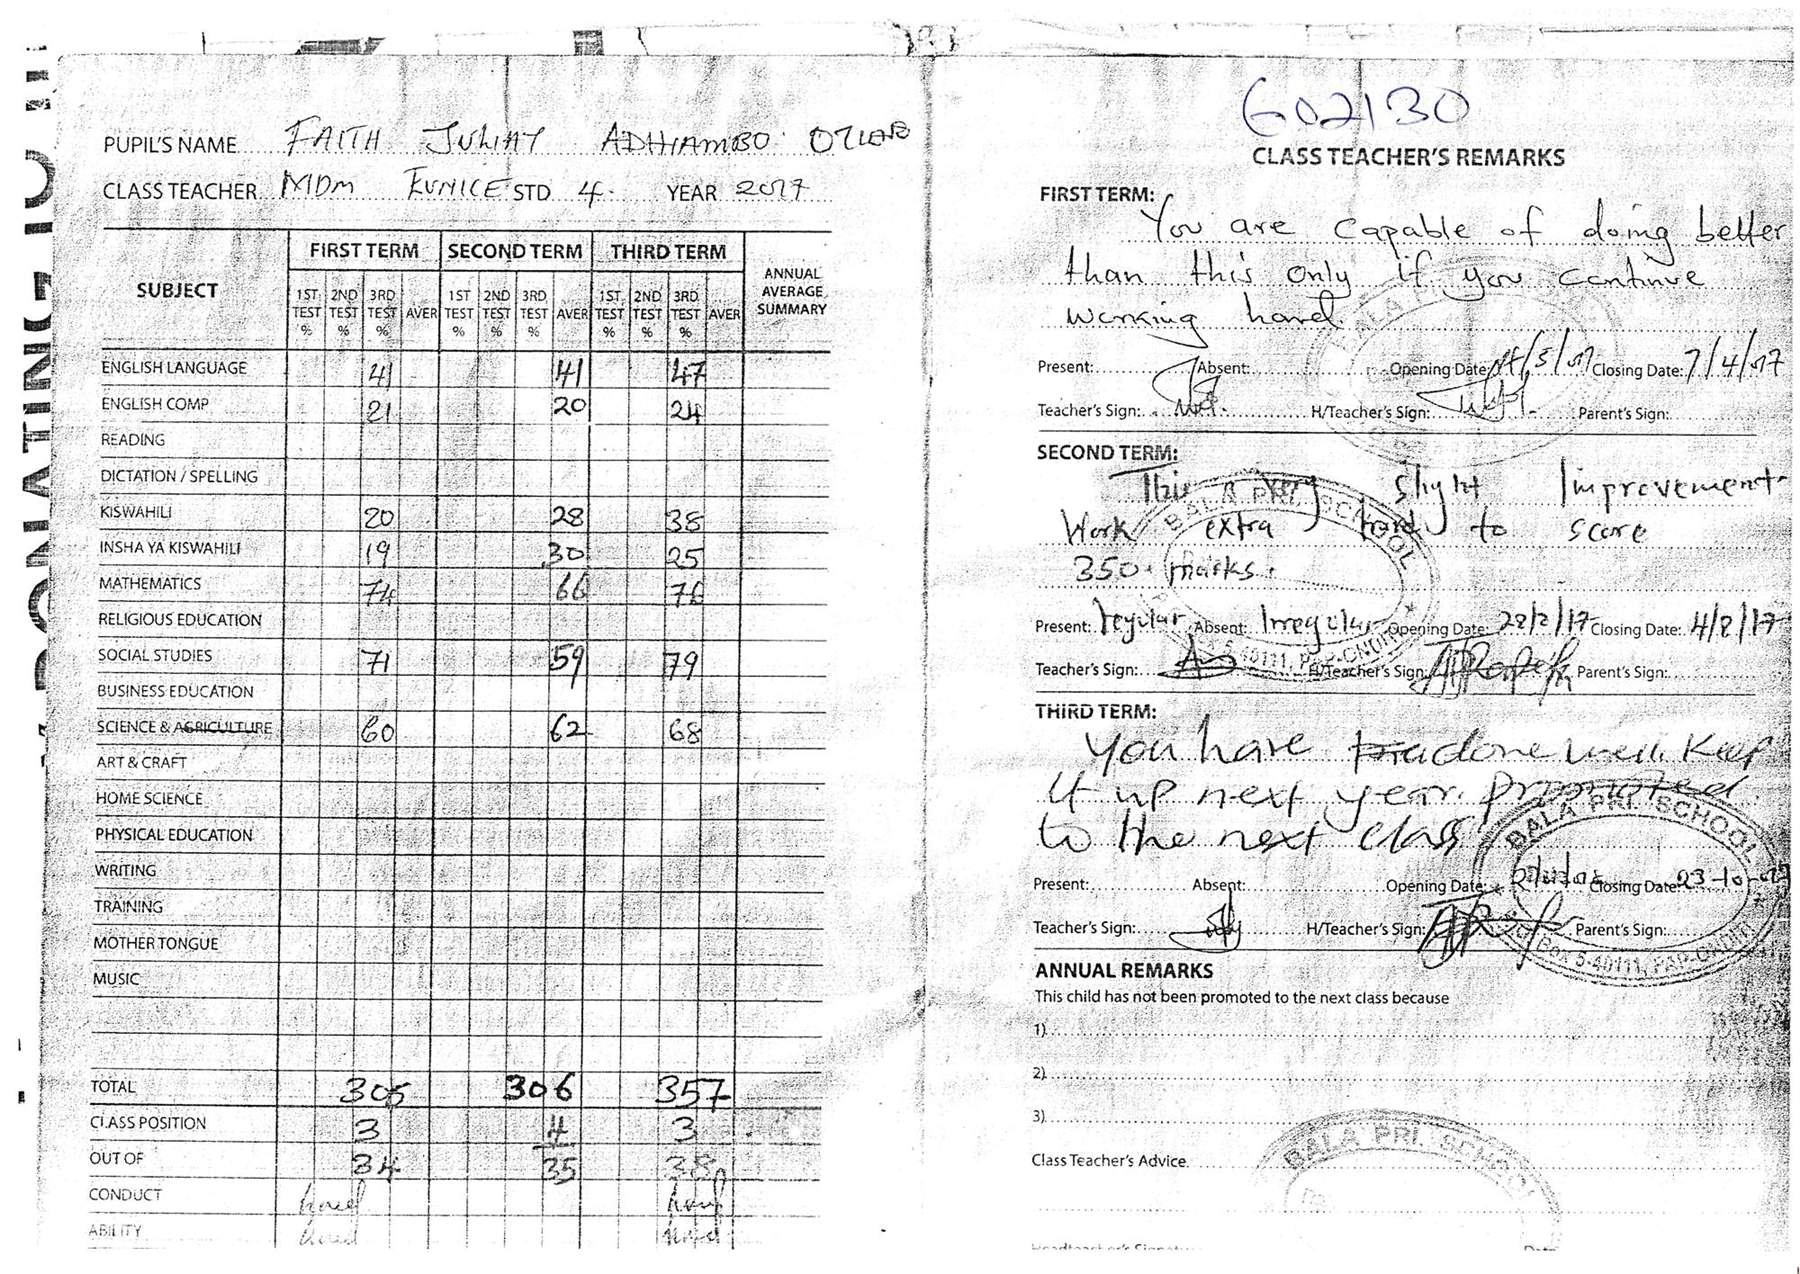 PUPIL'S NAME FAITH JULIAY ADHIAMBO
CLASS TEACHER MDM EUNICE STD 4 YEAR 2017
SUBJECT FIRST TERM SECOND TERM THIRD TERM ANNUAL AVERAGE SUMMARY
1ST TEST % 2ND TEST % 3RD TEST % AVER 1ST TEST % 2ND TEST % 3RD TEST % AVER 1ST TEST % 2ND TEST % 3RD TEST % AVER
ENGLISH LANGUAGE 41 41 47
ENGLISH COMP 21 20 24
READING
DICTATION / SPELLING
KISWAHILI 20 28 38
INSHA YA KISWAHILI 19 30 25
MATHEMATICS 74 66 76
RELIGIOUS EDUCATION
SOCIAL STUDIES 71 59 79
BUSINESS EDUCATION
SCIENCE & AGRICULTURE 60 62 68
ART & CRAFT
HOME SCIENCE
PHYSICAL EDUCATION
WRITING
TRAINING
MOTHER TONGUE
MUSIC
TOTAL 305 306 357
CLASS POSITION 3 4 3
OUT OF 34 35 38
CONDUCT
ABILITY
602130
CLASS TEACHER'S REMARKS
FIRST TERM:
You are capable of doing better
than this only if you continue
working hard
Present: Absent: Opening Date: Closing Date: 7/4/017
Teacher's Sign: H/Teacher's Sign: Parent's Sign:
SECOND TERM:
This a very slight Improvement
Work extra hard to score
350 marks.
Present: regular Absent: Irregular Opening Date: Closing Date: 4/8/17
Teacher's Sign: H/Teacher's Sign: Parent's Sign:
THIRD TERM:
You have done well. Keep
it up next year. promoted
to the next class
Present: Absent: Opening Date: Closing Date:
Teacher's Sign: H/Teacher's Sign: Parent's Sign:
BALA PRI. SCHOOL
BOX 5-40111, PAP-ONDITI
ANNUAL REMARKS
This child has not been promoted to the next class because
1)
2)
3)
BALA PRI. SCHOOL
Class Teacher's Advice